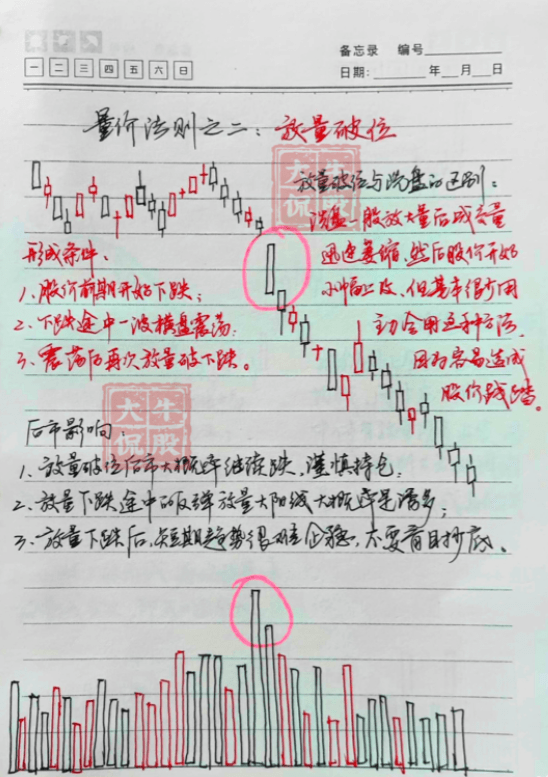 备忘录 编号
一 二 三 四 五 六 日
日期: 年 月 日
量价法则之二：放量破位
放量破位与洗盘的区别：
洗盘一般放大量后成交量
迅速萎缩，然后股价开始
小幅上攻，但基本很少用
主力会用这种方法，
因为容易造成
股价践踏。
形成条件：
1、股价前期开始下跌；
2、下跌途中一波横盘震荡；
3、震荡后再次放量破下跌。
大牛
侃股
大牛
侃股
后市影响
1、放量破位后市大概率继续跌，谨慎持仓；
2、放量下跌途中的反弹放量大阳线大概率是诱多；
3、放量下跌后，短期趋势很难企稳，不要盲目抄底。